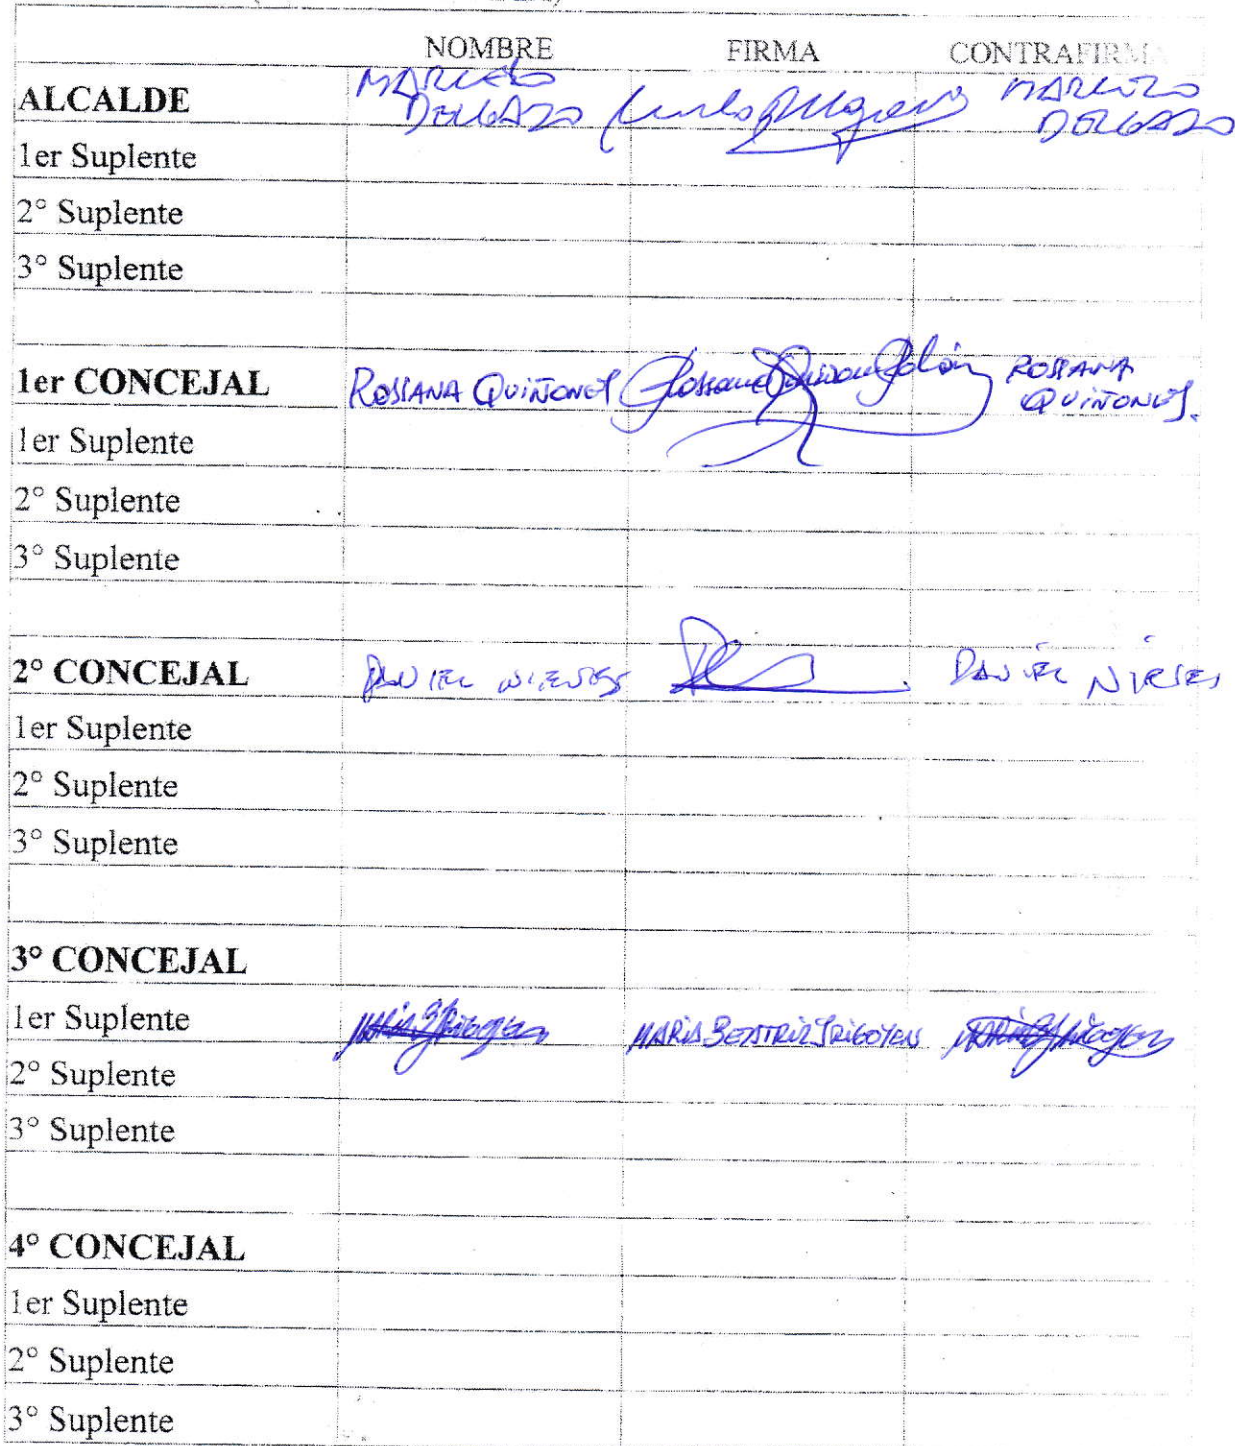 NOMBRE FIRMA CONTRAFIRMA
ALCALDE MARCELO DELGADO MARCELO DELGADO
1er Suplente
2° Suplente
3° Suplente
1er CONCEJAL ROSSANA QUIÑONES ROSSANA QUIÑONES.
1er Suplente
2° Suplente
3° Suplente
2° CONCEJAL DANIEL NIEVES DANIEL NIEVES
1er Suplente
2° Suplente
3° Suplente
3° CONCEJAL
1er Suplente MARIA BEATRIZ IRIGOYEN
2° Suplente
3° Suplente
4° CONCEJAL
1er Suplente
2° Suplente
3° Suplente